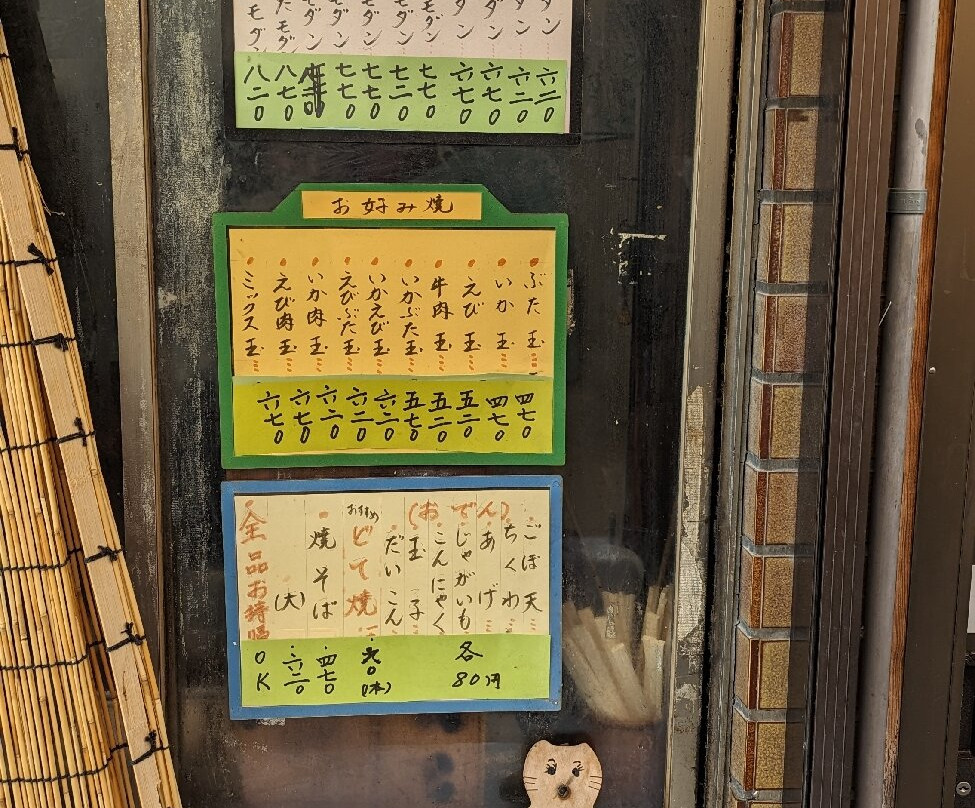 ダン 六二0
ダン 六二0
ダン 六七0
ダン 六七0
モダン 七七0
モダン 七二0
モダン 七七0
モダン 七七0
モダン
たモダン 八七0
モダン 八二0
お好み焼
ぶた玉 四七0
いか玉 四七0
えび玉 五二0
牛肉玉 五二0
いかぶた玉 五七0
いかえび玉 六二0
えびぶた玉 六二0
いか肉玉 六二0
えび肉玉 六七0
ミックス玉 六七0
(おでん)
ごぼ天
ちくわ
あげ
じゃがいも
こんにゃく
玉子
だいこん
各80円
おすすめ
どて焼 九0(1本)
焼そば 四七0
(大) 六二0
全品お持帰
OK